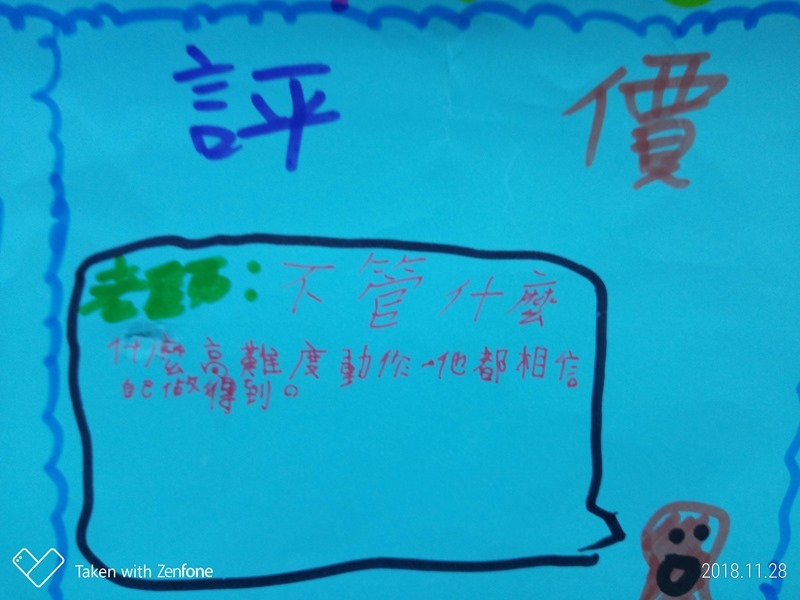 評 價
老師：不管什麼
什麼高難度動作,他都相信
自己做得到。
Taken with Zenfone
2018.11.28